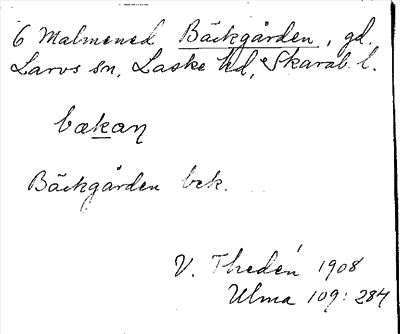 6 Malmened Bäckgården, gd.
Larvs sn, Laske hd, Skarab. l.
bækaɳ
Bäckgården bek.
V. Thedén 1908
Ulma 109: 284